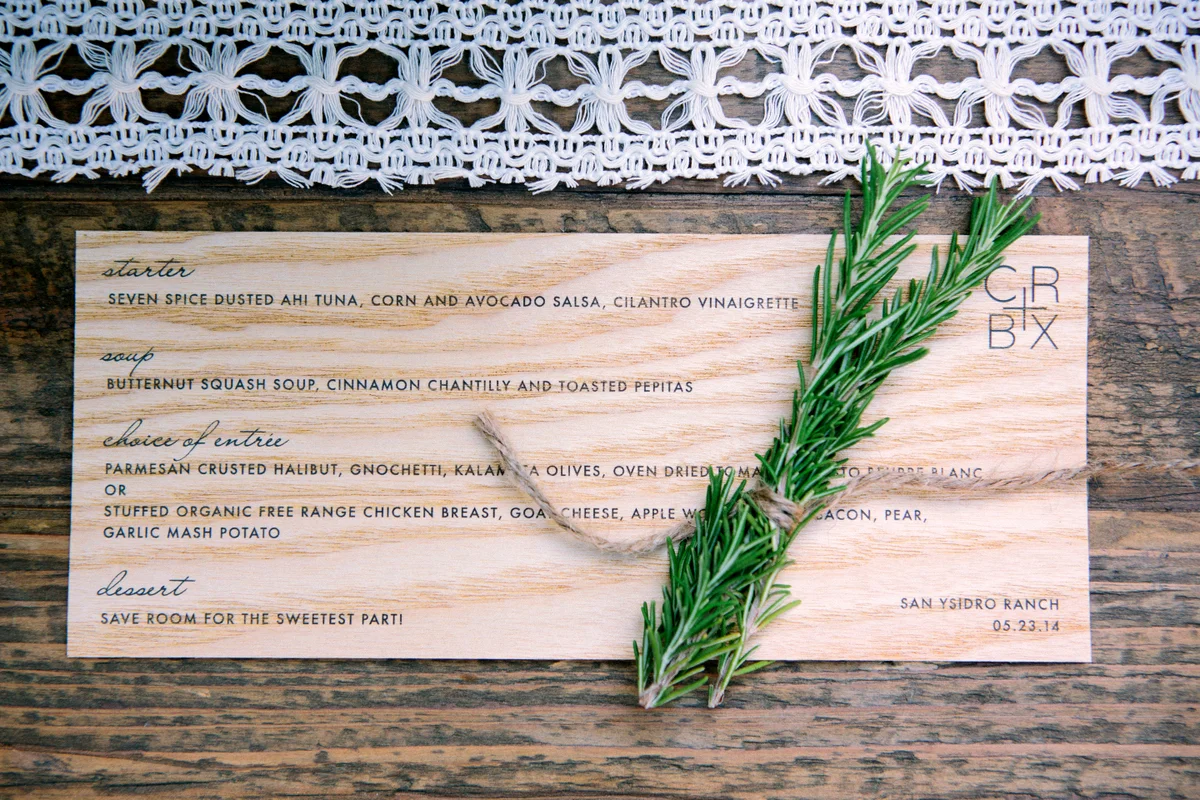 starter
SEVEN SPICE DUSTED AHI TUNA, CORN AND AVOCADO SALSA, CILANTRO VINAIGRETTE
soup
BUTTERNUT SQUASH SOUP, CINNAMON CHANTILLY AND TOASTED PEPITAS
choice of entrée
PARMESAN CRUSTED HALIBUT, GNOCHETTI, OLIVES, OVEN DRIED BEURRE BLANC
OR
STUFFED ORGANIC FREE RANGE CHICKEN BREAST, GOAT CHEESE, APPLE BACON, PEAR,
GARLIC MASH POTATO
dessert
SAVE ROOM FOR THE SWEETEST PART!
CR
+
BX
SAN YSIDRO RANCH
05.23.14